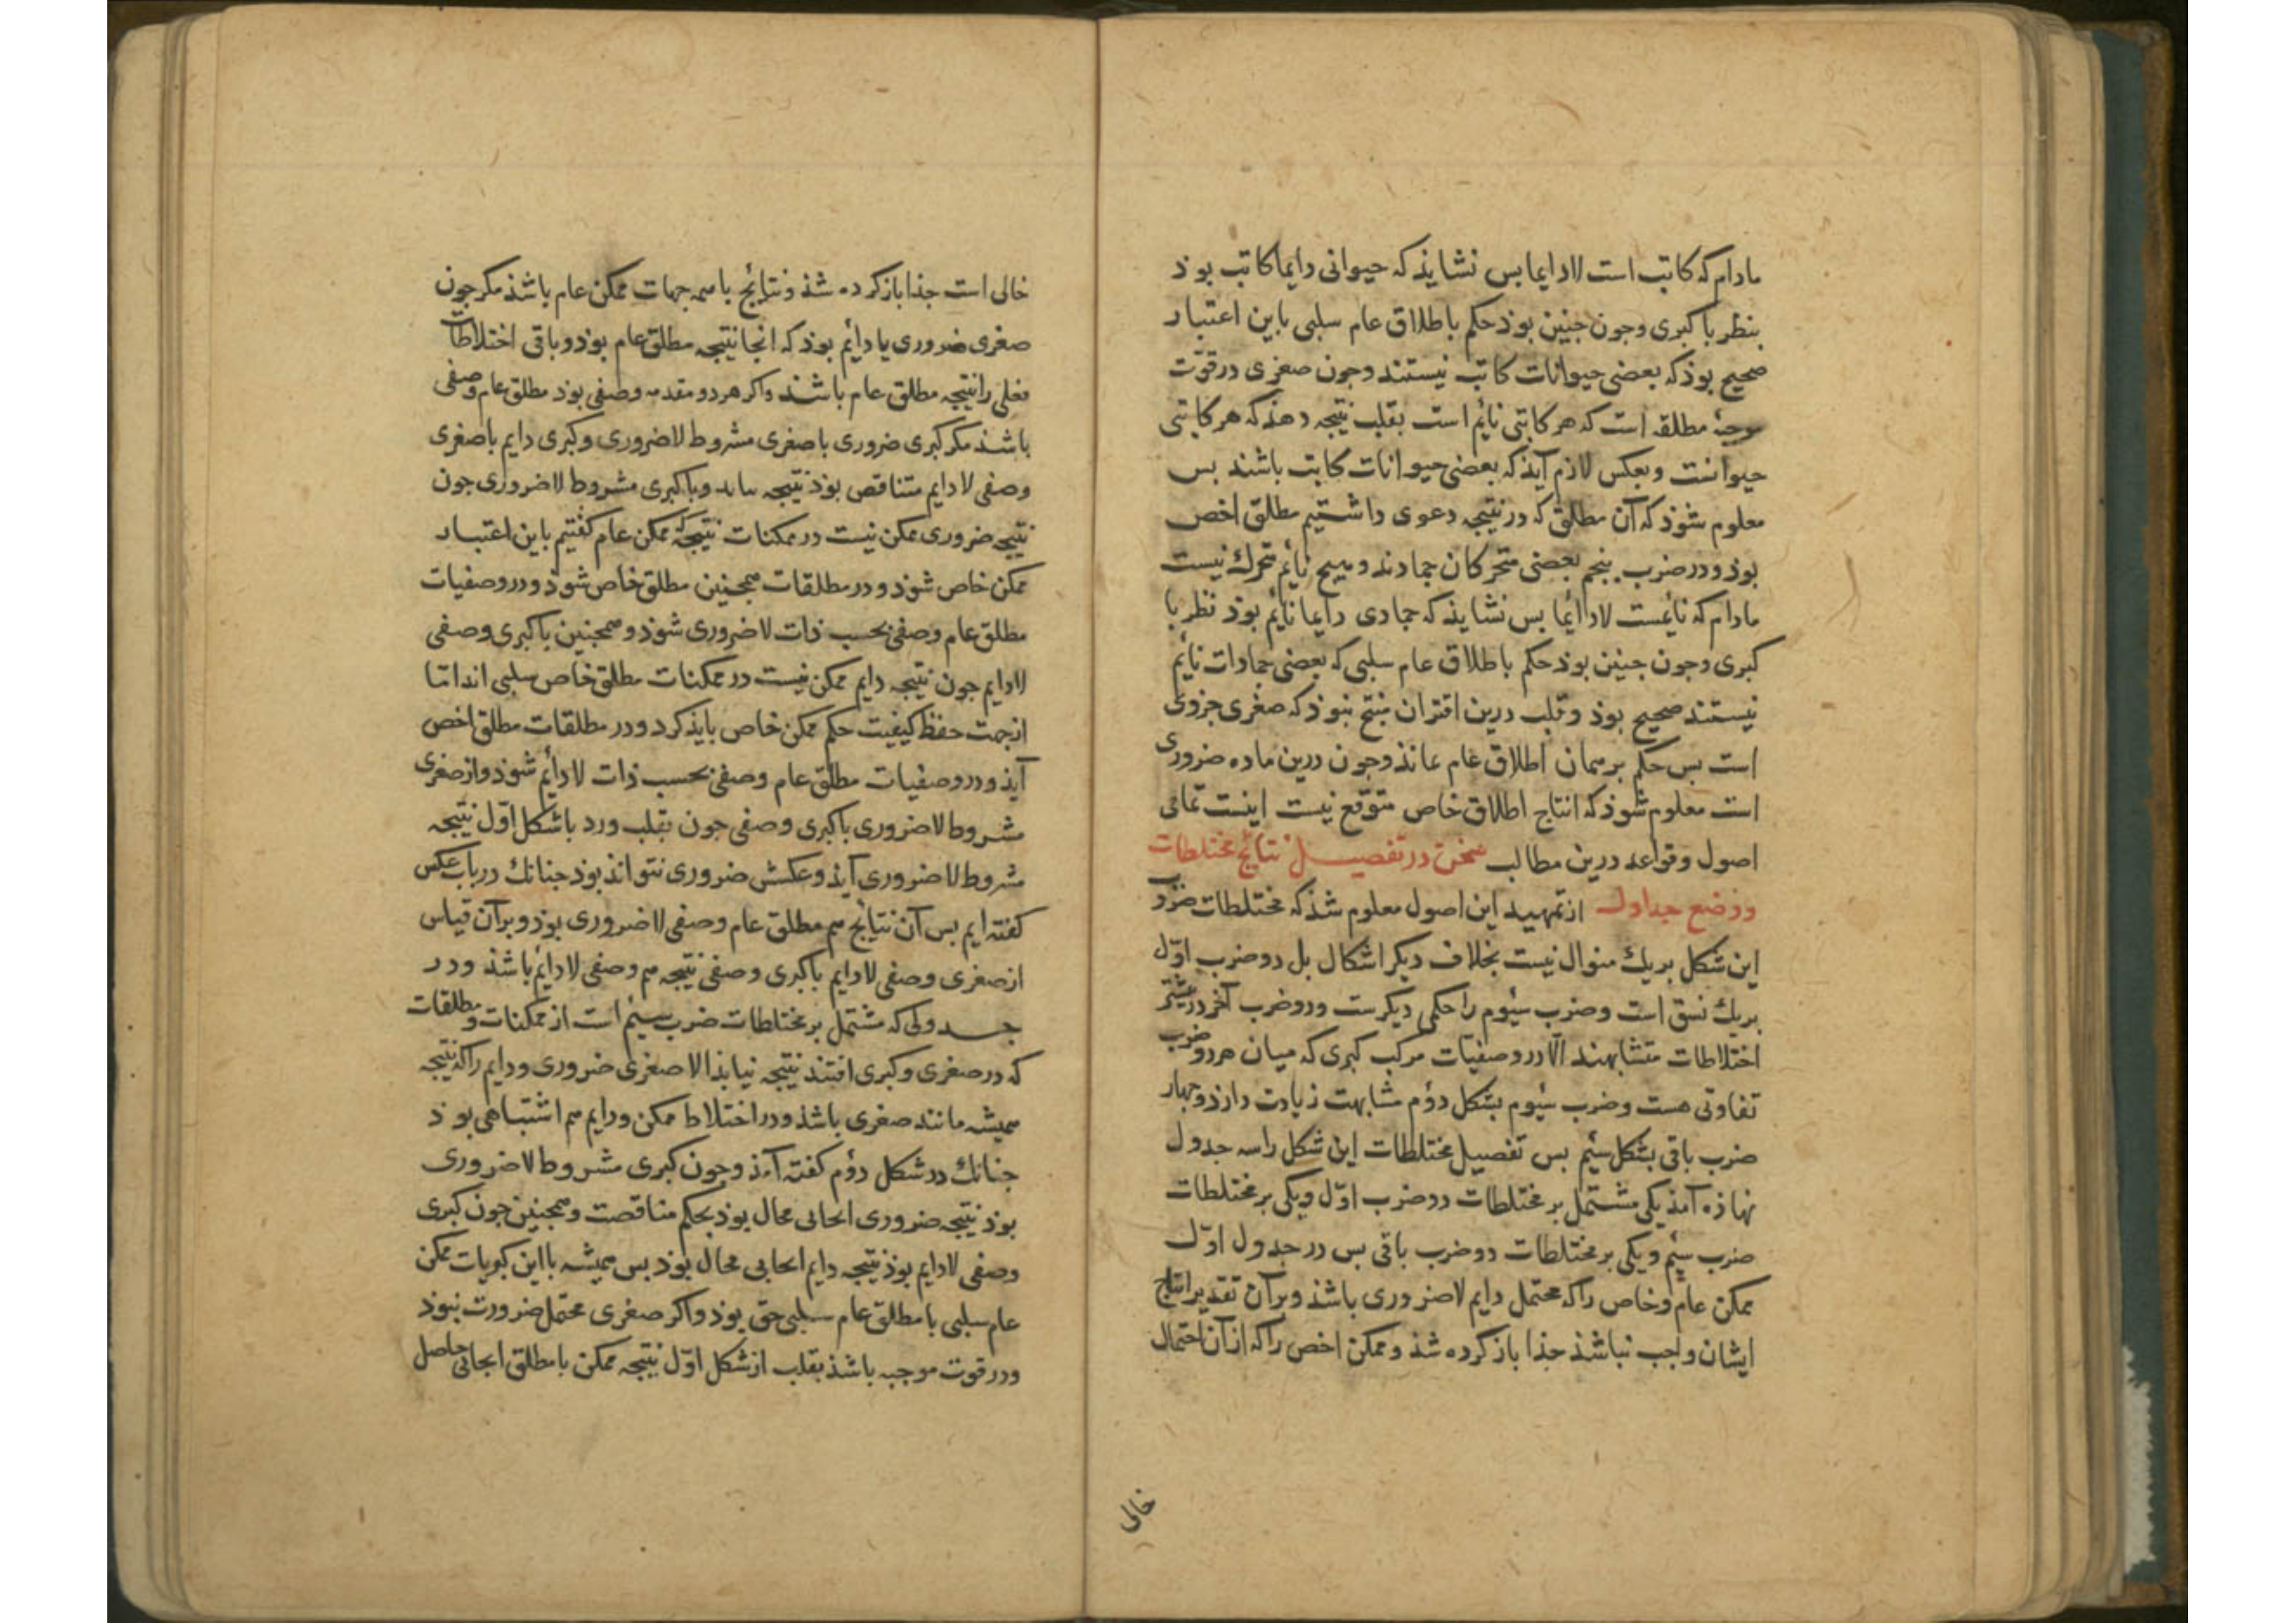 مادام که کاتب است لادایما بس نشایذ که حیوانی دایما کاتب بوذ
بنظر با کبری وجون جنین بوذ حکم باطلاق عام سلبی باین اعتبار
صحیح بوذ که بعضی حیوانات کاتب نیستند وجون صغری در قوّت
موجبهٔ مطلقه است که هر کاتبی نایم است بقلب نتیجه دهذ که هر کاتبی
حیوانست وبعکس لازم آیذ که بعضی حیوانات کاتب باشند بس
معلوم شوذ که آن مطلق که در نتیجه دعوی داشتیم مطلق اخص
بوذ ودر ضرب بنجم بعضی متحرکان جمادند وهیج نایم متحرک نیست
مادام که نایمست لادائما بس نشایذ که جمادی دایما نایم بوذ نظر با
کبری وجون جنین بوذ حکم باطلاق عام سلبی که بعضی جمادات نایم
نیستند صحیح بوذ وقلب درین اقتران منتج نبوذ که صغری جزوی
است بس حکم بر همان اطلاق عام عانذ وجون درین ماده ضروری
است معلوم شوذ که انتاج اطلاق خاص متوقع نیست اینست تمامی
اصول وقواعد درین مطالب سخن در تفصیل نتایج مختلطات
ووضع جداول از تمهید این اصول معلوم شذ که مختلطات ضروب
این شکل بر یک منوال نیست بخلاف دیکر اشکال بل دو ضرب اوّل
بریک نسق است وضرب سیوم را حکمی دیکرست ودو ضرب آخر در بیشتر
اختلاطات متشابهند الّا در وصفیات مرکب کبری که میان هر دو ضرب
تفاوتی هست وضرب سیوم بشکل دوم مشابهت زیادت دارذ وجهار
ضرب باقی بشکل سیم بس تفصیل مختلطات این شکل را سه جدول
نهاذه آمذ یکی مشتمل بر مختلطات دو ضرب اوّل ویکی بر مختلطات
ضرب سیم ویکی بر مختلطات دو ضرب باقی بس در جدول اوّل
ممکن عام وخاص را که محتمل دایم لاضروری باشذ وبرآن تقدیر انتاج
ایشان واجب نباشذ جذا باز کرده شذ وممکن اخص را که از آن احتمال
خالی
خالی است جذا باز کرده شذ ونتایج با همه جهات ممکن عام باشذ مکر جون
صغری ضروری یا دایم بوذ که انجا نتیجه مطلق عام بوذ وباقی اختلاطات
فعلی را نتیجه مطلق عام باشند واکر هر دو مقدمه وصفی بود مطلق عام وصفی
باشند مکر کبری ضروری با صغری مشروط لاضروری وکبری دایم با صغری
وصفی لادایم متناقص بوذ نتیجه وباکبری مشروط لاضروری جون
نتیجه ضروری ممکن نیست در ممکنات نتیجه که ممکن عام کفتیم باین اعتبار
ممکن خاص شوذ ودر مطلقات همجنین مطلق خاص شوذ ودر وصفیات
مطلق عام وصفی بحسب ذات لاضروری شوذ وهمجنین با کبری وصفی
لادایم جون نتیجه دایم ممکن نیست در ممکنات مطلق خاص سلبی امّا
از جهت حفظ کیفیت حکم ممکن خاص بایذ کرد ودر مطلقات مطلق اخص
آیذ ودر وصفیات مطلق عام وصفی بحسب ذات لادایم شوذ واز صغری
مشروط لاضروری با کبری وصفی جون بقلب ورد با شکل اوّل نتیجه
مشروط لاضروری آیذ وعکسش ضروری نتوانذ بوذ جنانک در باب عکس
کفته ایم بس آن نتایج هم مطلق عام وصفی لاضروری بوذ وبر آن قیاس
از صغری وصفی لادایم با کبری وصفی نتیجه هم وصفی لادایم باشذ ودر
جدولی که مشتمل بر مختلطات ضرب سیم است از ممکنات ومطلقات
که در صغری وکبری افتند نتیجه نیابذ الا صغری ضروری ودایم را که نتیجه
همیشه مانند صغری باشذ ودر اختلاط ممکن ودایم هم اشتباهی بوذ
جنانک در شکل دوم کفته آمذ وجون کبری مشروط لاضروری
بوذ نتیجه ضروری ایجابی محال بوذ بحکم مناقضت وهمجنین جون کبری
وصفی لادایم بوذ نتیجه دایم ایجابی محال بوذ بس همیشه با این کبریات ممکن
عام سلبی یا مطلق عام سلبی حق بوذ واکر صغری محتمل ضرورت نبوذ
ودر قوت موجبه باشذ بقلب از شکل اوّل نتیجه ممکن یا مطلق ایجابی حاصل